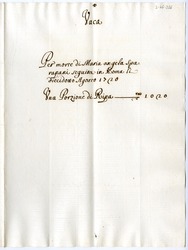 Vaca
Per morte di Maria Angela Spa
rapani seguita in Roma li
Agosto 1720
Una Porzione di Ripa 1020